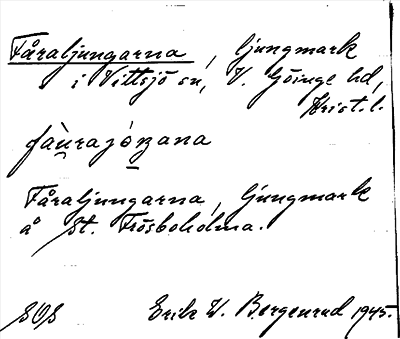 Fåraljungarna, ljungmark
i Vittsjö sn, V. Göinge hd,
Krist. l.
fàu̯rajóŋana
Fåraljungarna, ljungmark
å St. Frösboholma.
SOS Erik W. Bergenrud 1945.